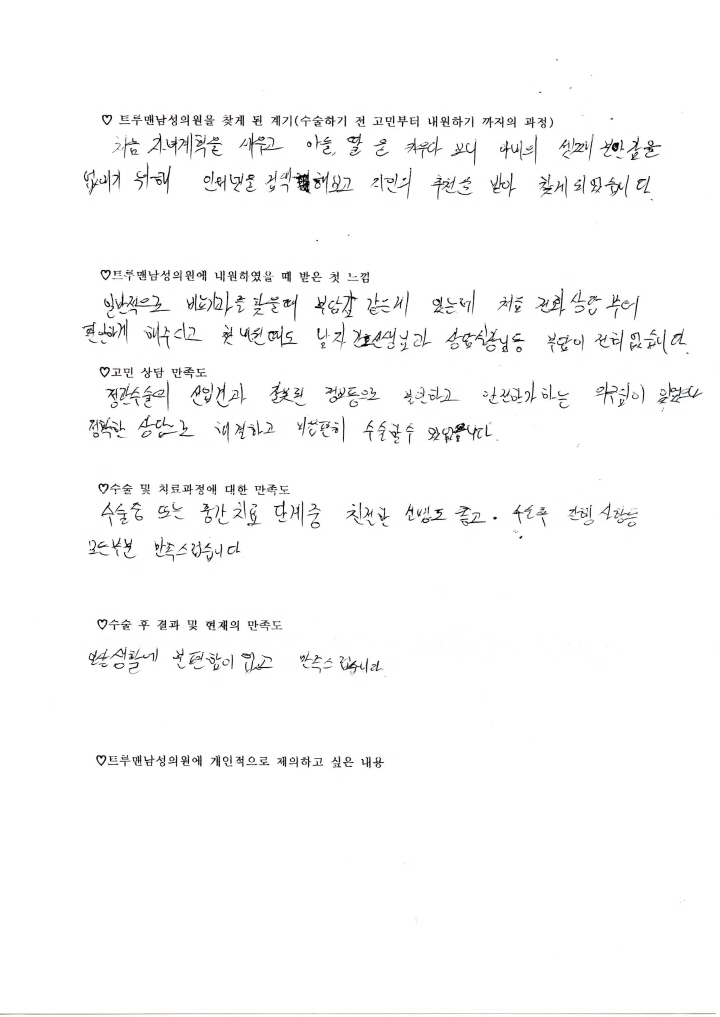 ♡ 트루맨남성의원을 찾게 된 계기(수술하기 전 고민부터 내원하기 까지의 과정)
처음 자녀계획을 세우고 아들, 딸을 키우다 보니 아내의 셋째 불안감을
없애기 위해 인터넷을 검색해보고 지인의 추천을 받아 찾게 되었습니다.
♡트루맨남성의원에 내원하였을 때 받은 첫 느낌
일반적으로 비뇨기과를 찾을때 부담감 같은게 있는데 처음 전화상담부터
편안하게 해주시고 첫 내원때도 남자 간호선생님과 상담실장님등 부담이 전혀 없었습니다.
♡고민 상담 만족도
정관수술의 선입견과 잘못된 정보등으로 불안하고
정확한 상담으로 해결하고 마음편히 수술할수 있었습니다.
♡수술 및 치료과정에 대한 만족도
수술중 또는 중간치료 단계중 친절한 설명도 좋고. 수술후 진행 상황등
모든부분 만족스럽습니다
♡수술 후 결과 및 현재의 만족도
생활에 불편함이 없고 만족스럽습니다.
♡트루맨남성의원에 개인적으로 제의하고 싶은 내용